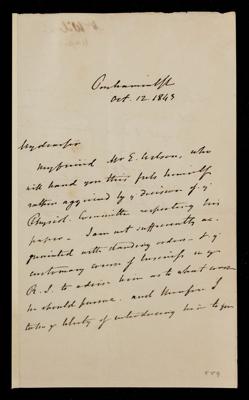 Oct. 12 1843
My dear Sir
My friend Mr E. Wilson, who
will hand you this, feels himself
rather aggrieved by y decision of y
Physiol. Committee respecting his
paper. I am not sufficiently ac-
quainted with standing orders & y
customary course of business in y
R. S. to advise him as to what course
he should pursue. and therefore I
take y liberty of introducing him to you
559